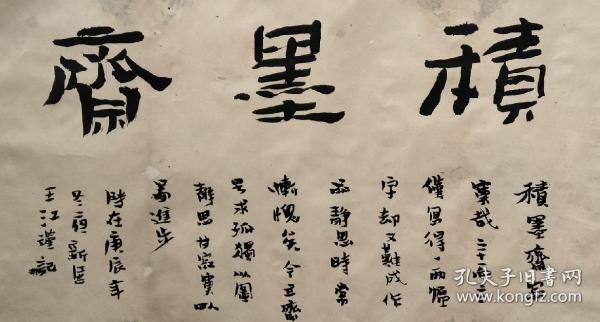 積墨齋
積墨齋
實哉 三十
僅寫得一兩幅
字却又難成作
品静思時常
慚愧矣今立齋
号求孤獨以圖
静思甘寂寞以
高進步
時在庚辰年
冬 新居
王江謹記
孔夫子旧书网
www.kongfz.com